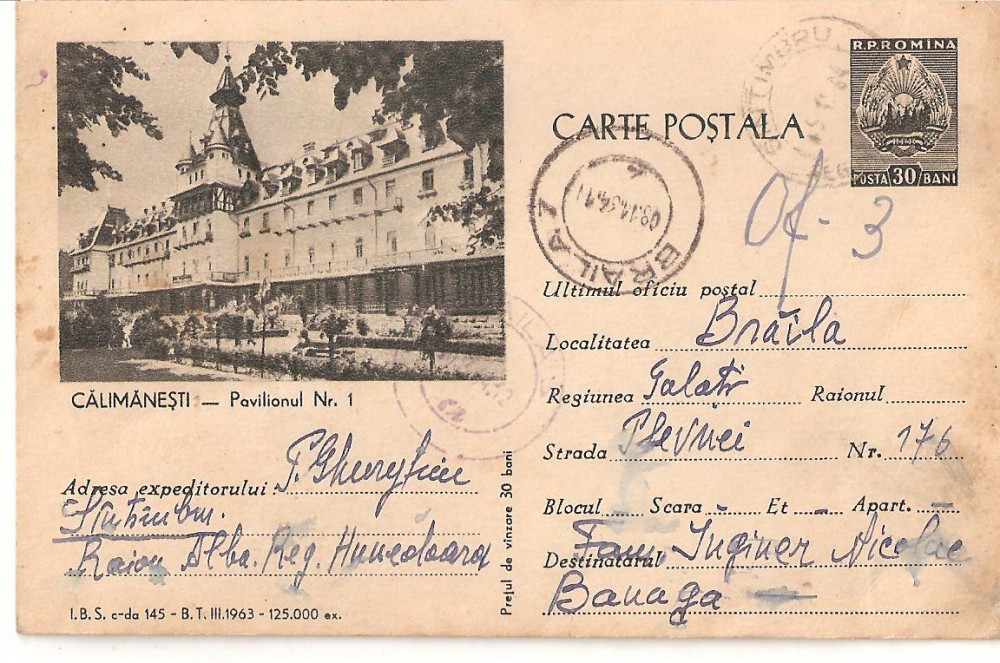 R.P.ROMINA
POSTA 30 BANI
CARTE POȘTALA
BRAILA
Of. 3
CĂLIMĂNEȘTI — Pavilionul Nr. 1
Adresa expeditorului: P. Gheorghiu
Sîntimbru.
Raion Alba. Reg. Hunedoara
I.B.S. c-da 145 - B.T. III.1963 - 125.000 ex.
Prețul de vînzare 30 bani
Ultimul oficiu poștal
Localitatea Brăila
Regiunea Galati Raionul
Strada Plevnei Nr. 176
Blocul — Scara — Et — Apart. —
Destinatarul Fam. Inginer Nicolae
Banaga